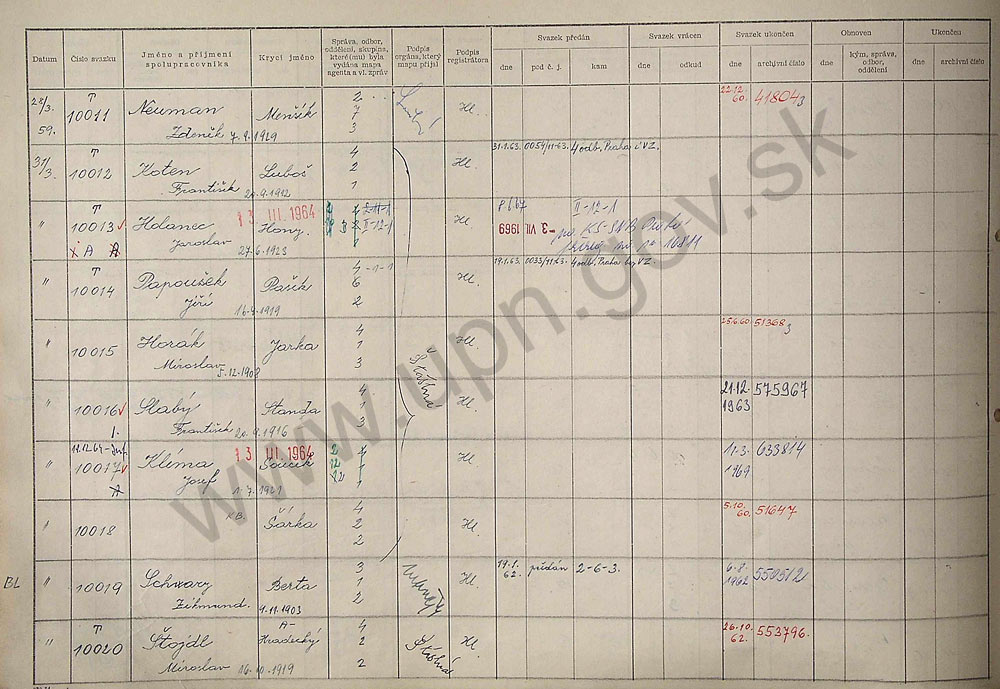 Datum
Číslo svazku
Jméno a příjmení
spolupracovníka
Krycí jméno
Správa, odbor,
oddělení, skupina,
které(mu) byla
vydána mapa
agenta a vl. zpráv
Podpis
orgána, který
mapu přijal
Podpis
registrátora
Svazek předán
dne
pod č. j.
kam
Svazek vrácen
dne
odkud
Svazek ukončen
dne
archivní číslo
Obnoven
dne
kým, správa,
odbor,
oddělení
Ukončen
dne
archivní číslo
28/3.
59.
T
10011
Neuman
Zdeněk 7.9.1929
Menšík
2
7
3
Hl.
22.12.
60.
41804/3
31/3.
T
10012
Koten
František 20.9.1912
Luboš
4
2
1
Hl.
31.1.63. 0054/11-63. 4 odb. Praha
" T
10013
A A
Holanec
Jaroslav 27.6.1923
13 III. 1964
Hony
II-12-1
Hl.
-3 VII. 1969
II-12-1
" T
10014
Papoušek
Jiří 16.9.1919
Pašík
4 -1-1
6
2
Hl.
19.1.63. 0033/11-63. 4 odb. Praha
" 10015
Horák
Miroslav 5.12.1908
Jarka
4
1
3
Šťastná
Hl.
25.6.60. 51368/3
" 10016
1.
Slabý
František 20.9.1916
Standa
4
1
3
Hl.
21.12.
1963
575967
" 10017
A
Klíma
Josef 1.7.1921
13 III. 1964
Souček
Hl.
11.3.
1969
633814
" 10018
KB.
Šárka
4
2
2
Hl.
5.10.
60.
51647
BL " 10019
Schwarz
Zikmund. 4.11.1903
Berta
3
1
2
Hl.
19.1.
62.
předán 2-6-3.
6.8.
1962
550512
" T
10020
Štojdl
Miroslav 16.10.1919
A-
Hradecký
4
2
2
Šťastná
Hl.
26.10.
62.
553796.
www.upn.gov.sk